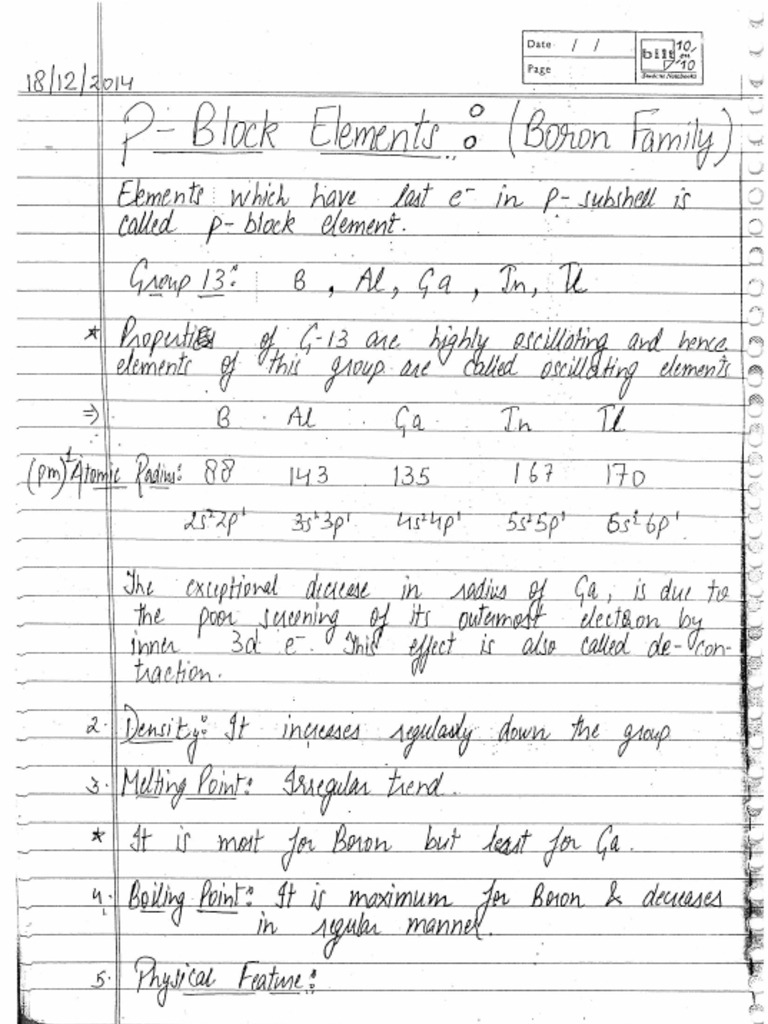 Date / /
Page
bilt 10 on 10
Student Notebooks
18/12/2014
P-Block Elements : (Boron Family)
Elements which have last e⁻ in p-subshell is
called p-block element.
Group 13: B, Al, Ga, In, Tl
* Properties of G-13 are highly oscillating and hence
elements of this group are called oscillating elements
⇒ B Al Ga In Tl
(pm) 1 Atomic Radius: 88 143 135 167 170
2s²2p¹ 3s²3p¹ 4s²4p¹ 5s²5p¹ 6s²6p¹
The exceptional decrease in radius of Ga, is due to
the poor screening of its outermost electron by
inner 3d e⁻. This effect is also called de-con-
traction.
2. Density: It increases regularly down the group
3. Melting Point: Irregular trend.
* It is most for Boron but least for Ga.
4. Boiling Point: It is maximum for Boron & decreases
in regular manner.
5. Physical Feature: